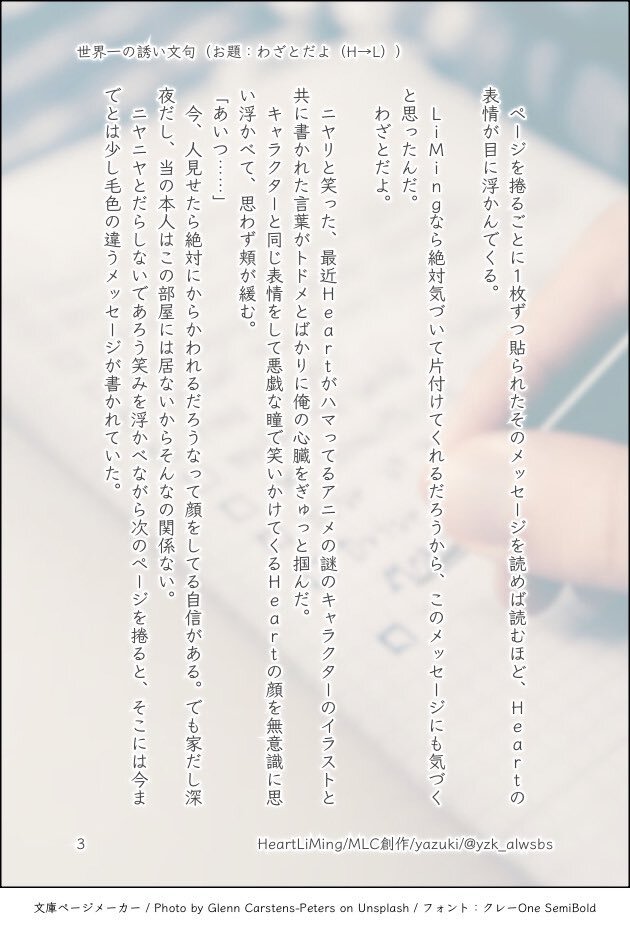 世界一の誘い文句（お題：わざとだよ（H→L））
ページを捲るごとに１枚ずつ貼られたそのメッセージを読めば読むほど、Ｈｅａｒｔの
表情が目に浮かんでくる。
ＬｉＭｉｎｇなら絶対気づいて片付けてくれるだろうから、このメッセージにも気づく
と思ったんだ。
わざとだよ。
ニヤリと笑った、最近Ｈｅａｒｔがハマってるアニメの謎のキャラクターのイラストと
共に書かれた言葉がトドメとばかりに俺の心臓をぎゅっと掴んだ。
キャラクターと同じ表情をして悪戯な瞳で笑いかけてくるＨｅａｒｔの顔を無意識に思
い浮かべて、思わず頬が緩む。
「あいつ……」
今、人見せたら絶対にからかわれるだろうなって顔をしてる自信がある。でも家だし深
夜だし、当の本人はこの部屋には居ないからそんなの関係ない。
ニヤニヤとだらしないであろう笑みを浮かべながら次のページを捲ると、そこには今ま
でとは少し毛色の違うメッセージが書かれていた。
3
HeartLiMing/MLC創作/yazuki/@yzk_alwsbs
文庫ページメーカー / Photo by Glenn Carstens-Peters on Unsplash / フォント：クレーOne SemiBold